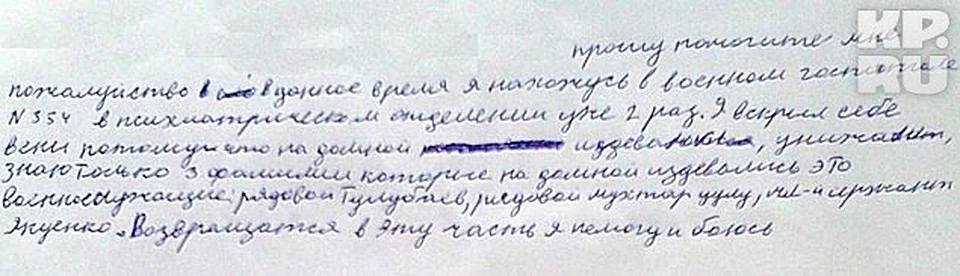 прошу помогите мне
KP.RU
пожалуйство в данное время я нахожусь в военном госпитале
N 354 в психиатрическом отделении уже 2 раз. Я вскрил себе
вени потому что на домной издевались, унижают,
знаю только 3 фамилии которые на домной издевались это
военнослужащие: рядовой рядовой Мухтар уулу, мл-й сержант
Яценко. Возвращатся в эту часть я немогу и боюсь